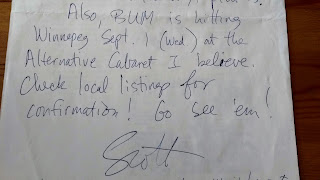 Also, BUM is hitting
Winnepeg Sept. 1 (Wed) at the
Alternative Cabaret I believe.
Check local listings for
confirmation! Go see 'em!
Scott